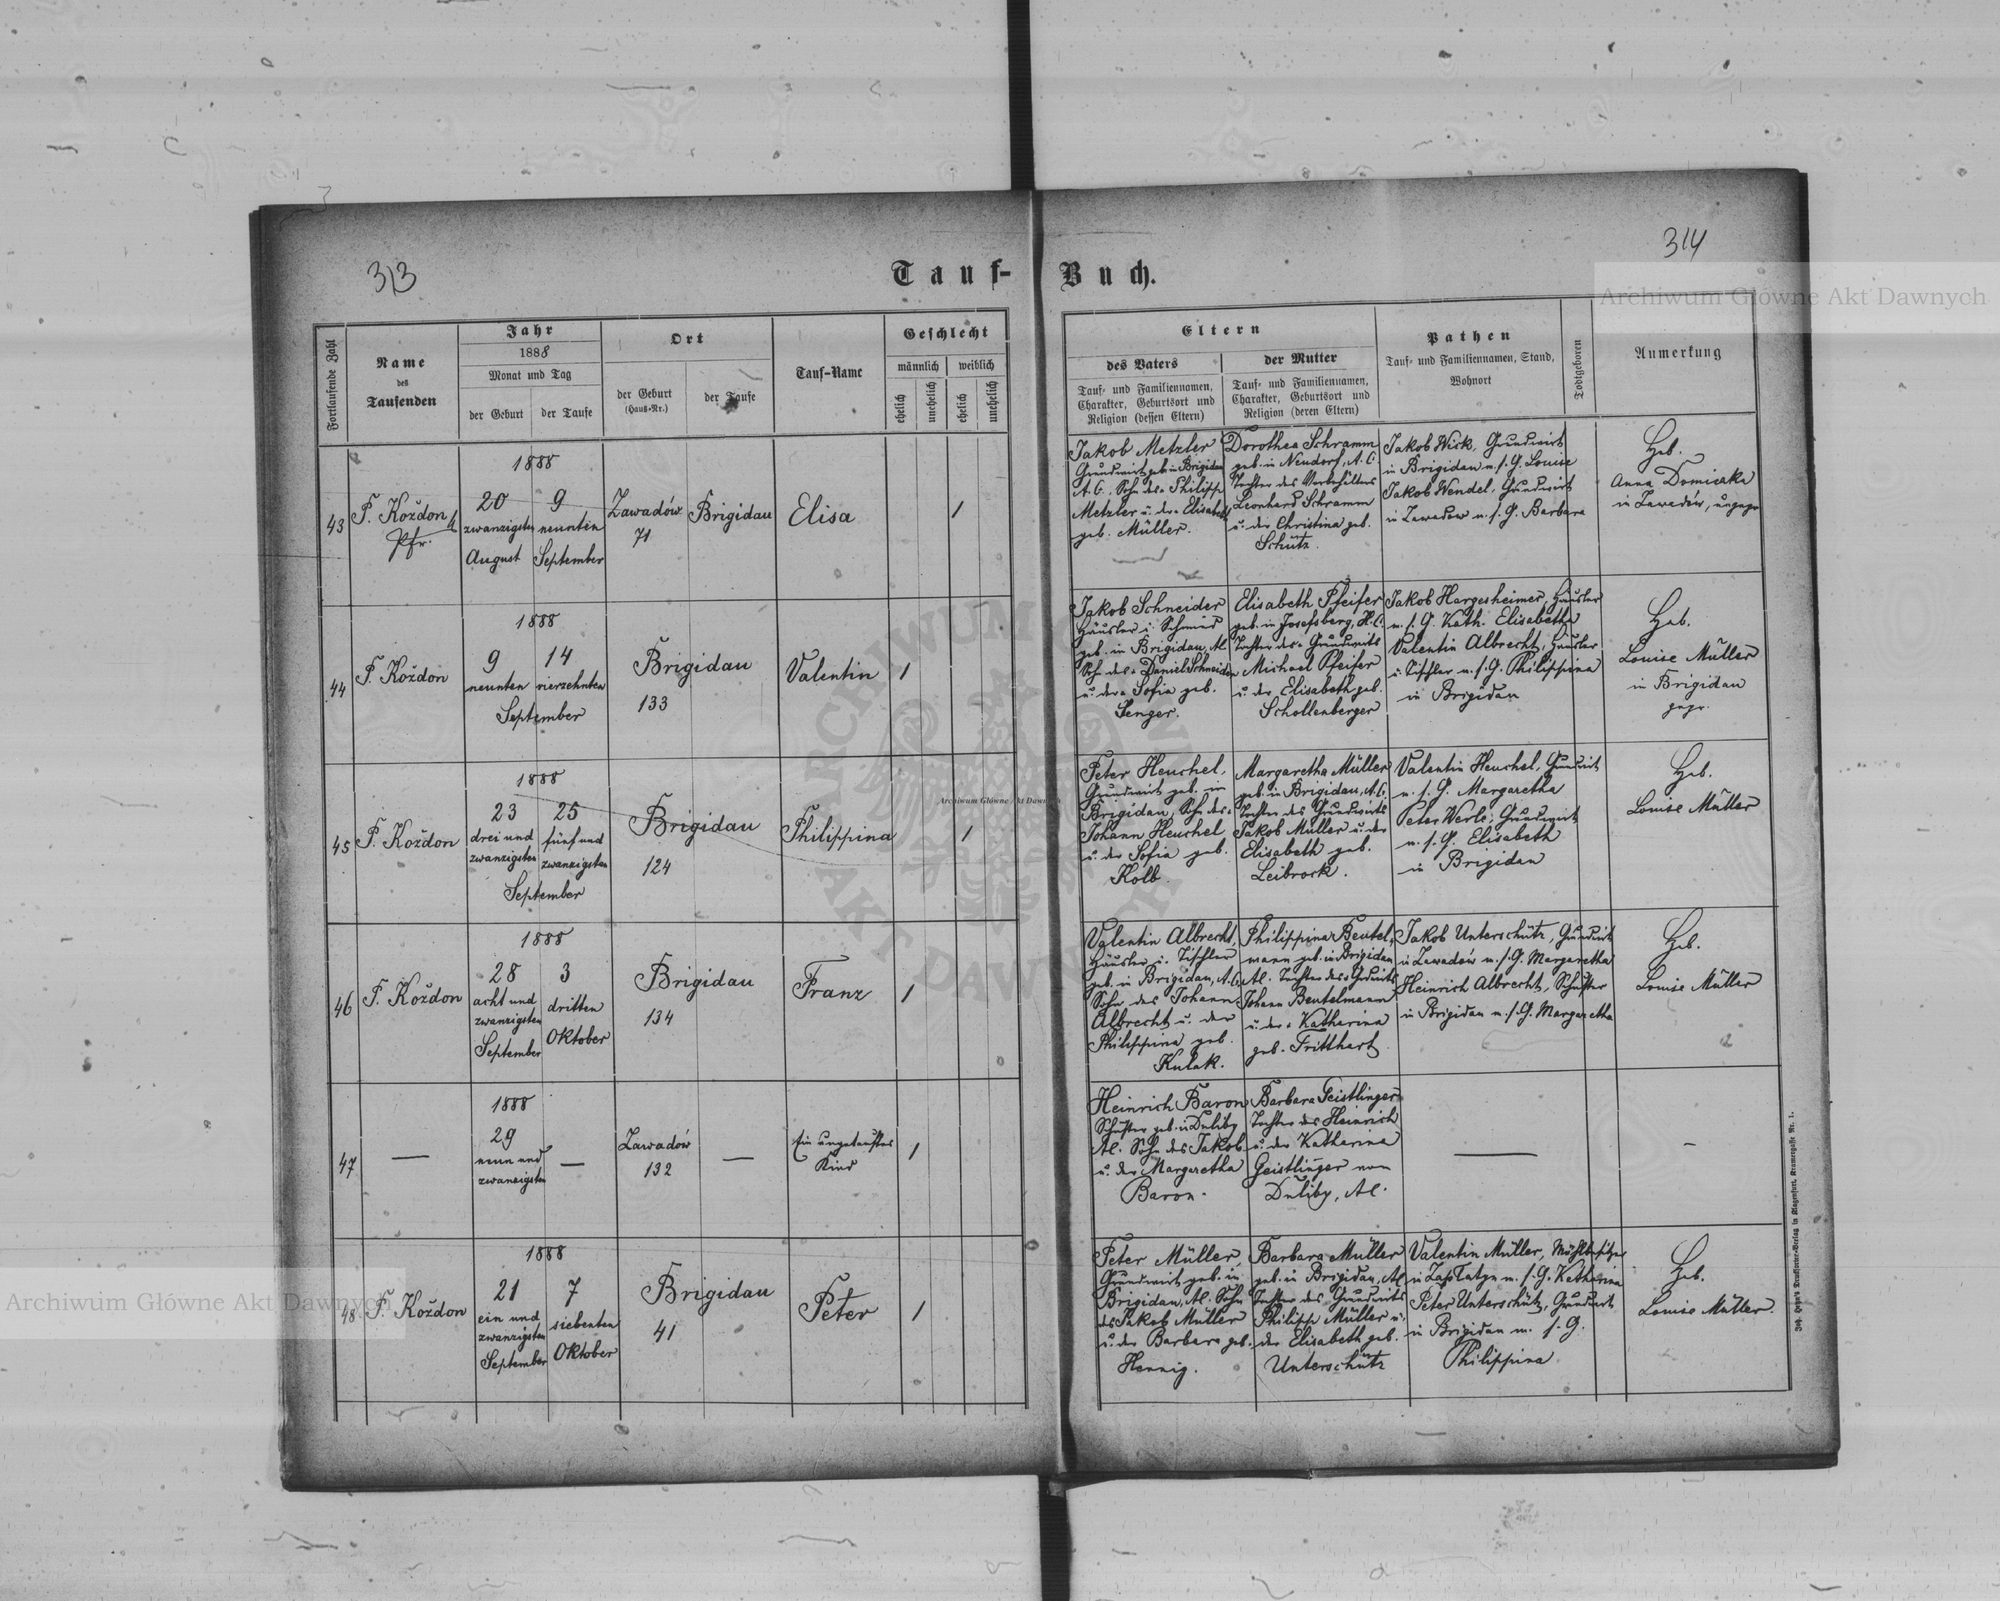 313
Tauf-
Buch.
314
Fortlaufende Zahl
Name
des
Taufenden
Jahr
1888
Monat und Tag
der Geburt
der Taufe
Ort
der Geburt
(Haus-Nr.)
der Taufe
Tauf-Name
Geschlecht
männlich
weiblich
ehelich
unehelich
ehelich
unehelich
Eltern
des Vaters
Tauf- und Familiennamen,
Charakter, Geburtsort und
Religion (dessen Eltern)
der Mutter
Tauf- und Familiennamen,
Charakter, Geburtsort und
Religion (deren Eltern)
Pathen
Tauf- und Familiennamen, Stand,
Wohnort
Todtgeboren
Anmerkung
43
F. Koždon
Pfr.
1888
20
zwanzigsten
August
9
neunten
September
Zawadów
71
Brigidau
Elisa
1
Jakob Metzler
Grundwirt geb. in Brigidau
A.C., Sohn des Philipp
Metzler u. der Elisabeth
geb. Müller.
Dorothea Schramm
geb. in Neudorf, A.C.
Tochter des Vorbehälters
Leonhard Schramm
u. der Christina geb.
Schütz.
Jakob Wick, Grundwirt
in Brigidau m. s. G. Louise
Jakob Wendel, Grundwirt
in Zawadow m. s. G. Barbara
Heb.
Anna
in Zawadów, ungepr.
44
F. Koždon
1888
9
neunten
14
vierzehnten
September
Brigidau
133
Valentin
1
Jakob Schneider
Häusler u. Schmied
geb. in Brigidau, A.C.
Sohn des Daniel Schneider
u. der Sofia geb.
Senger.
Elisabeth Pfeifer
geb. in Josefsberg, H.C.
Tochter des Grundwirts
Michael Pfeifer
u. der Elisabeth geb.
Schollenberger
Jakob Hargesheimer, Häusler
m. s. G. Kath. Elisabetha
Valentin Albrecht, Häusler
u. Tischler m. s. G. Philippina
in Brigidau
Heb.
Louise Müller
in Brigidau
gepr.
45
F. Koždon
1888
23
drei und
zwanzigsten
25
fünf und
zwanzigsten
September
Brigidau
124
Philippina
1
Peter Heuchel,
Grundwirt geb. in
Brigidau, Sohn des
Johann Heuchel
u. der Sofia geb.
Kolb.
Margaretha Müller
geb. in Brigidau, A.C.
Tochter des Grundwirts
Jakob Müller u. der
Elisabeth geb.
Leibrock.
Valentin Heuchel, Grundwirt
m. s. G. Margaretha
Peter Werle, Grundwirt
m. s. G. Elisabeth
in Brigidau
Heb.
Louise Müller
46
F. Koždon
1888
28
acht und
zwanzigsten
September
3
dritten
Oktober
Brigidau
134
Franz
1
Valentin Albrecht,
Häusler u. Tischler
geb. in Brigidau, A.C.
Sohn des Johann
Albrecht u. der
Philippina geb.
Kulak.
Philippina Beutel-
mann geb. in Brigidau
A.C. Tochter des Grdwirts
Johann Beutelmann
u. der Katharina
geb. Fritthart
Jakob Unterschütz, Grundwirt
in Zawadów m. s. G. Margaretha
Heinrich Albrecht, Schuster
in Brigidau m. s. G. Margaretha
Heb.
Louise Müller
47
—
1888
29
neun und
zwanzigsten
—
Zawadów
132
—
Ein ungetauftes
Kind
1
Heinrich Baron
Schuster geb. in Duliby
A.C. Sohn des Jakob
u. der Margaretha
Baron.
Barbara Geistlinger
Tochter des Heinrich
u. der Katharina
Geistlinger von
Duliby, A.C.
—
—
48
F. Koždon
1888
21
ein und
zwanzigsten
September
7
siebenten
Oktober
Brigidau
41
Peter
1
Peter Müller,
Grundwirt geb. in
Brigidau, A.C. Sohn
des Jakob Müller
u. der Barbara geb.
Hennig.
Barbara Müller
geb. in Brigidau, A.C.
Tochter des Grundwirts
Philipp Müller u.
der Elisabeth geb.
Unterschütz
Valentin Müller, Mühlbesitzer
in m. s. G. Katharina
Peter Unterschütz, Grundwirt
in Brigidau m. s. G.
Philippina
Heb.
Louise Müller.
Joh. Leon's Drucksorten-Verlag in Klagenfurt, Kramergasse Nr. 1.
Archiwum Główne Akt Dawnych
Archiwum Główne Akt Dawnych
Archiwum Główne Akt Dawnych
ARCHIWUM GŁÓWNE
AKT DAWNYCH